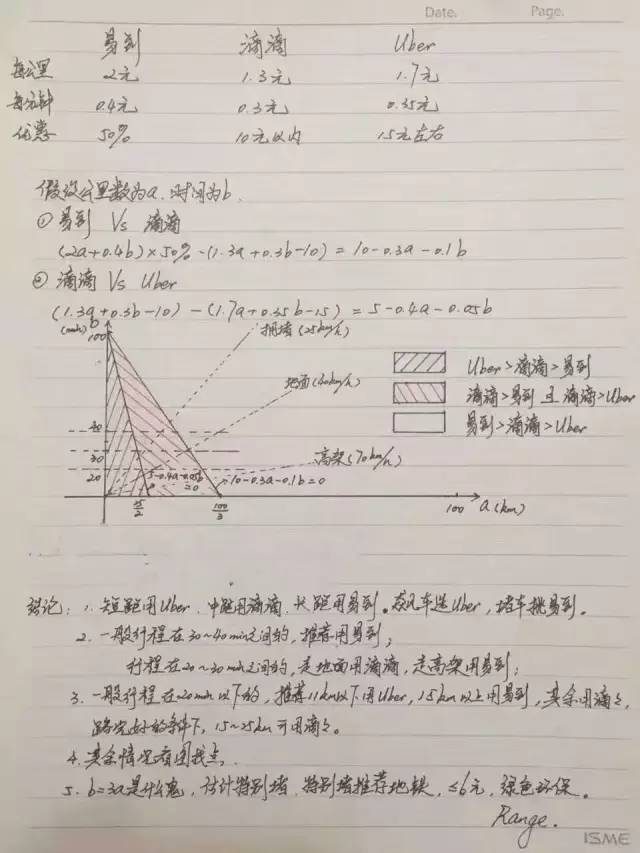 Date. Page.
易到 滴滴 Uber
每公里 2元 1.3元 1.7元
每分钟 0.4元 0.3元 0.35元
优惠 50% 10元以内 15元左右
假设公里数为a.时间为b.
① 易到 Vs 滴滴
(2a+0.4b)×50%-(1.3a+0.3b-10)=10-0.3a-0.1b
② 滴滴 Vs Uber
(1.3a+0.3b-10)-(1.7a+0.35b-15)=5-0.4a-0.05b
b
(min)
100
拥堵(25km/h)
地面(40km/h)
高架(70km/h)
Uber>滴滴>易到
滴滴>易到 且 滴滴>Uber
易到>滴滴>Uber
30
20
5-0.4a-0.05b
=0
10-0.3a-0.1b=0
0
25/2
100/3
100 a(km)
结论: 1. 短距用Uber.中距用滴滴.长距用易到。兜风车选Uber,堵车挑易到。
2. 一般行程在30~40min之间的,推荐用易到;
行程在20~30min之间的,走地面用滴滴,走高架用易到;
3. 一般行程在20min以下的,推荐11km以下用Uber,15km以上用易到,其余用滴滴,
路况好的条件下,15~25km可用滴滴。
4. 其余情况看图找点.
5. b=3a是什么鬼,估计特别堵.特别堵推荐地铁,≤6元,绿色环保。
Range.
ISME